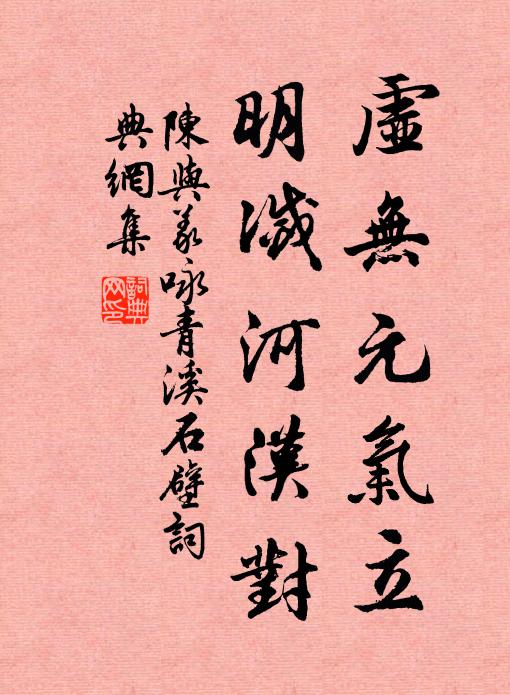 虛無元氣立
明滅河漢對
陳與義咏青溪石壁詞
典網集
詞典
网印